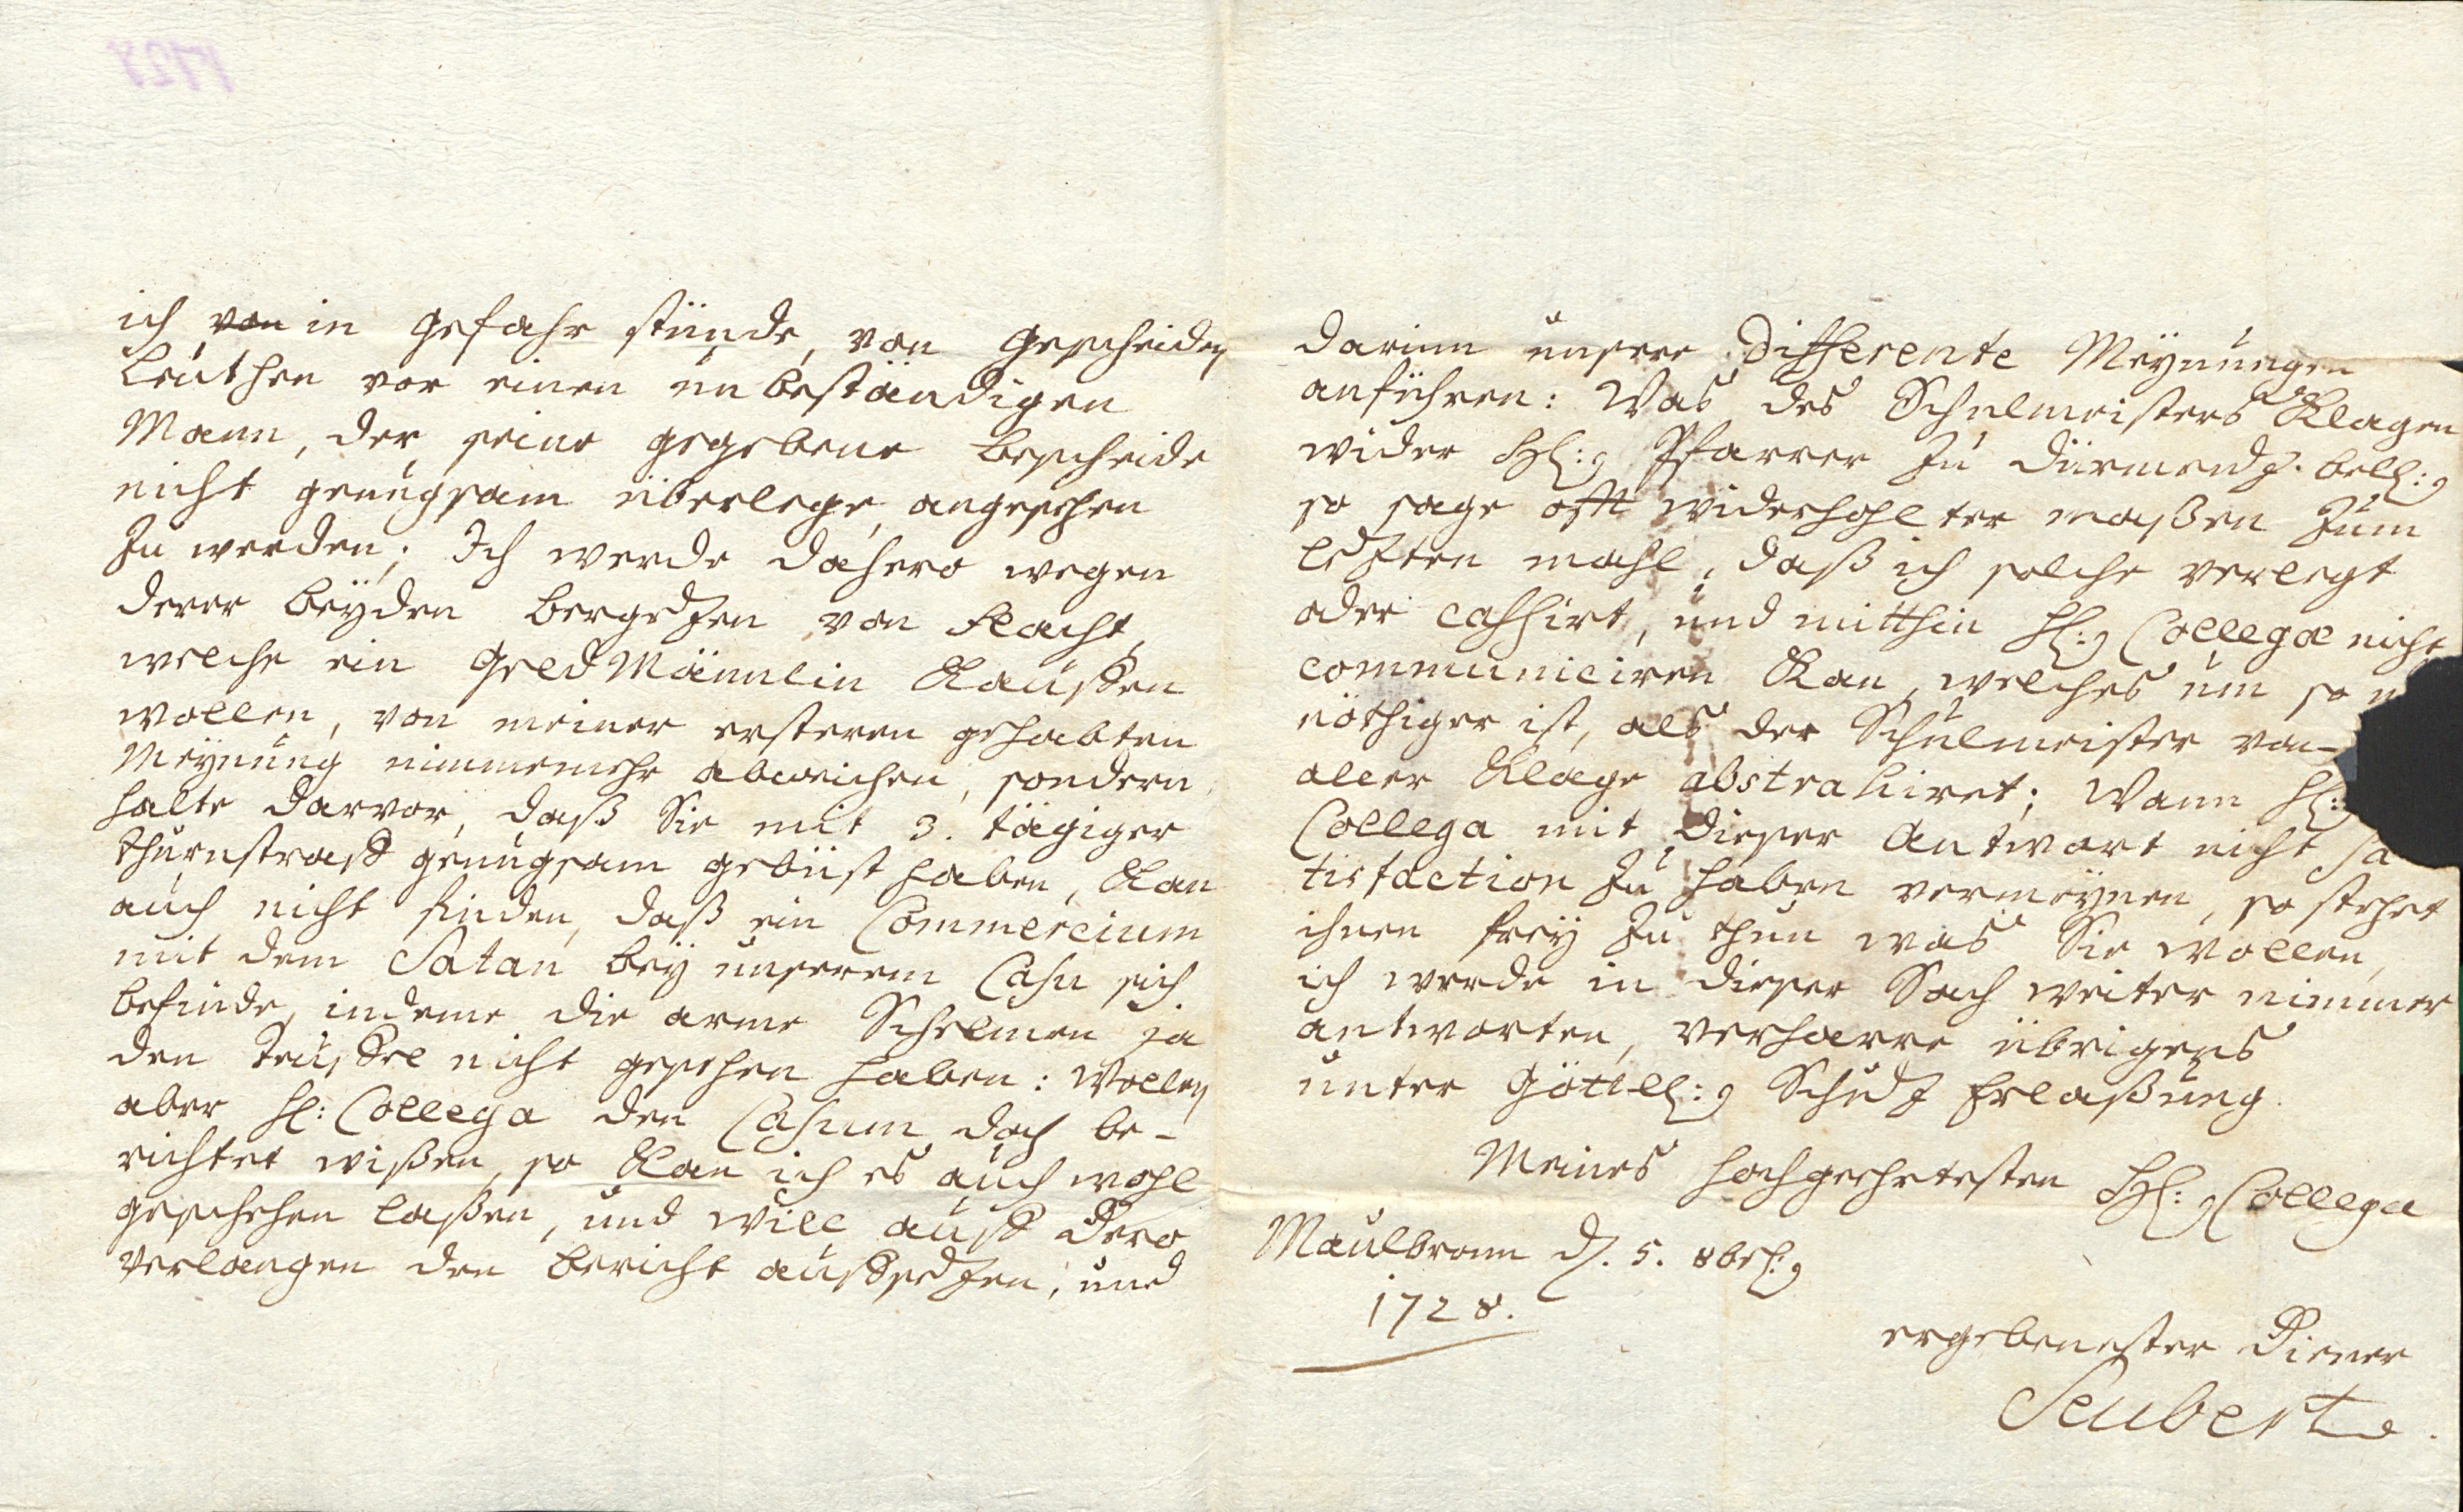 ich von in gefahr stünde, von gescheiden
Leüthen vor einen unbeständigen
Mann, der seine gegebene bescheide
nicht genugsam überlege, angesehen
zu werden; Ich werde dahero wegen
derer beÿden bergetzen von Flacht,
welche ein Geld Männlin Kauffen
wollen, von meiner ersteren gehabten
Meÿnung nimmermehr abweichen, sondern
halte darvor, daß Sie mit 3. tägiger
thurnstraff genugsam gebüst haben, Kan
auch nicht finden, daß ein Commercium
mit dem Satan beÿ unserem Casu sich
befinde, indeme die arme Schelmen ja
den Teüffel nicht gesehen haben: Wollen
aber H: Collega den Casum doch be-
richtet wißen, so Kan ich es auch wohl
geschehen laßen, und will auff Dero
verlangen den bericht auffsetzen, und
darinn unsere differente Meÿnungen
anführen: Was des Schulmeisters Klagen
wider Hl: Pfarrer zu Dürmentz. bell:
so sage offt widerhohlter maßen zum
letzten mahl, daß ich solche verlegt
oder cassirt, und mitthin Hl: Collegæ nicht
communiciren Kan, welches um so
nöthiger ist, als der Schulmeister von
aller Klage abstrahiret; Wann Hl:
Collega mit dieser Antwort nicht sa
tisfaction zu haben vermeÿnen, so stehet
ihnen freÿ zu thun was Sie wollen,
ich werde in dieser Sach weiter nimmer
antworten, verharre übrigens
unter Göttl: Schutz Erlaßung
Meines hochgeehrtesten Hl: Collega
Maulbronn d. 5. 8br:
1728.
ergebenster Diener
Seubert
1728